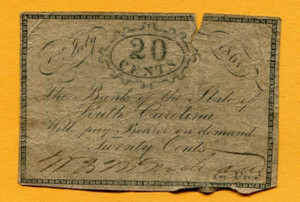 July 20 1861
CENTS
The Bank of the State of
South Carolina
Will pay Bearer on demand
Twenty Cents